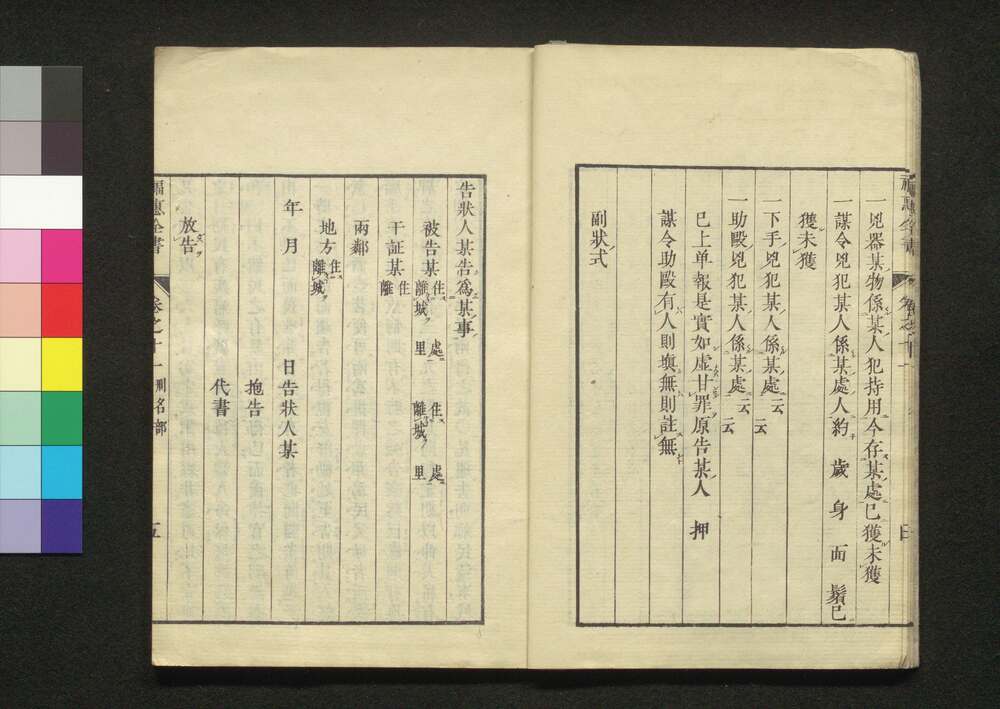 福惠全書
一兇器某物係某人犯持用今存某處已獲未獲
一謀令兇犯某人係某處人約 歲 身 面 鬚已
獲未獲
一下手兇犯某人係某處云云
一助毆兇犯某人係某處云云
已上单報是實如虛甘罪原告某人 押
謀令助毆有人則塡無則註無
副狀式
告狀人某告爲某事
被告某住離城 處里 住離城 處里
干証某住離
兩鄰
地方住離城
年 月 日告狀人某
抱告
代書
放告
福惠全書 卷之十一 刑名部 五